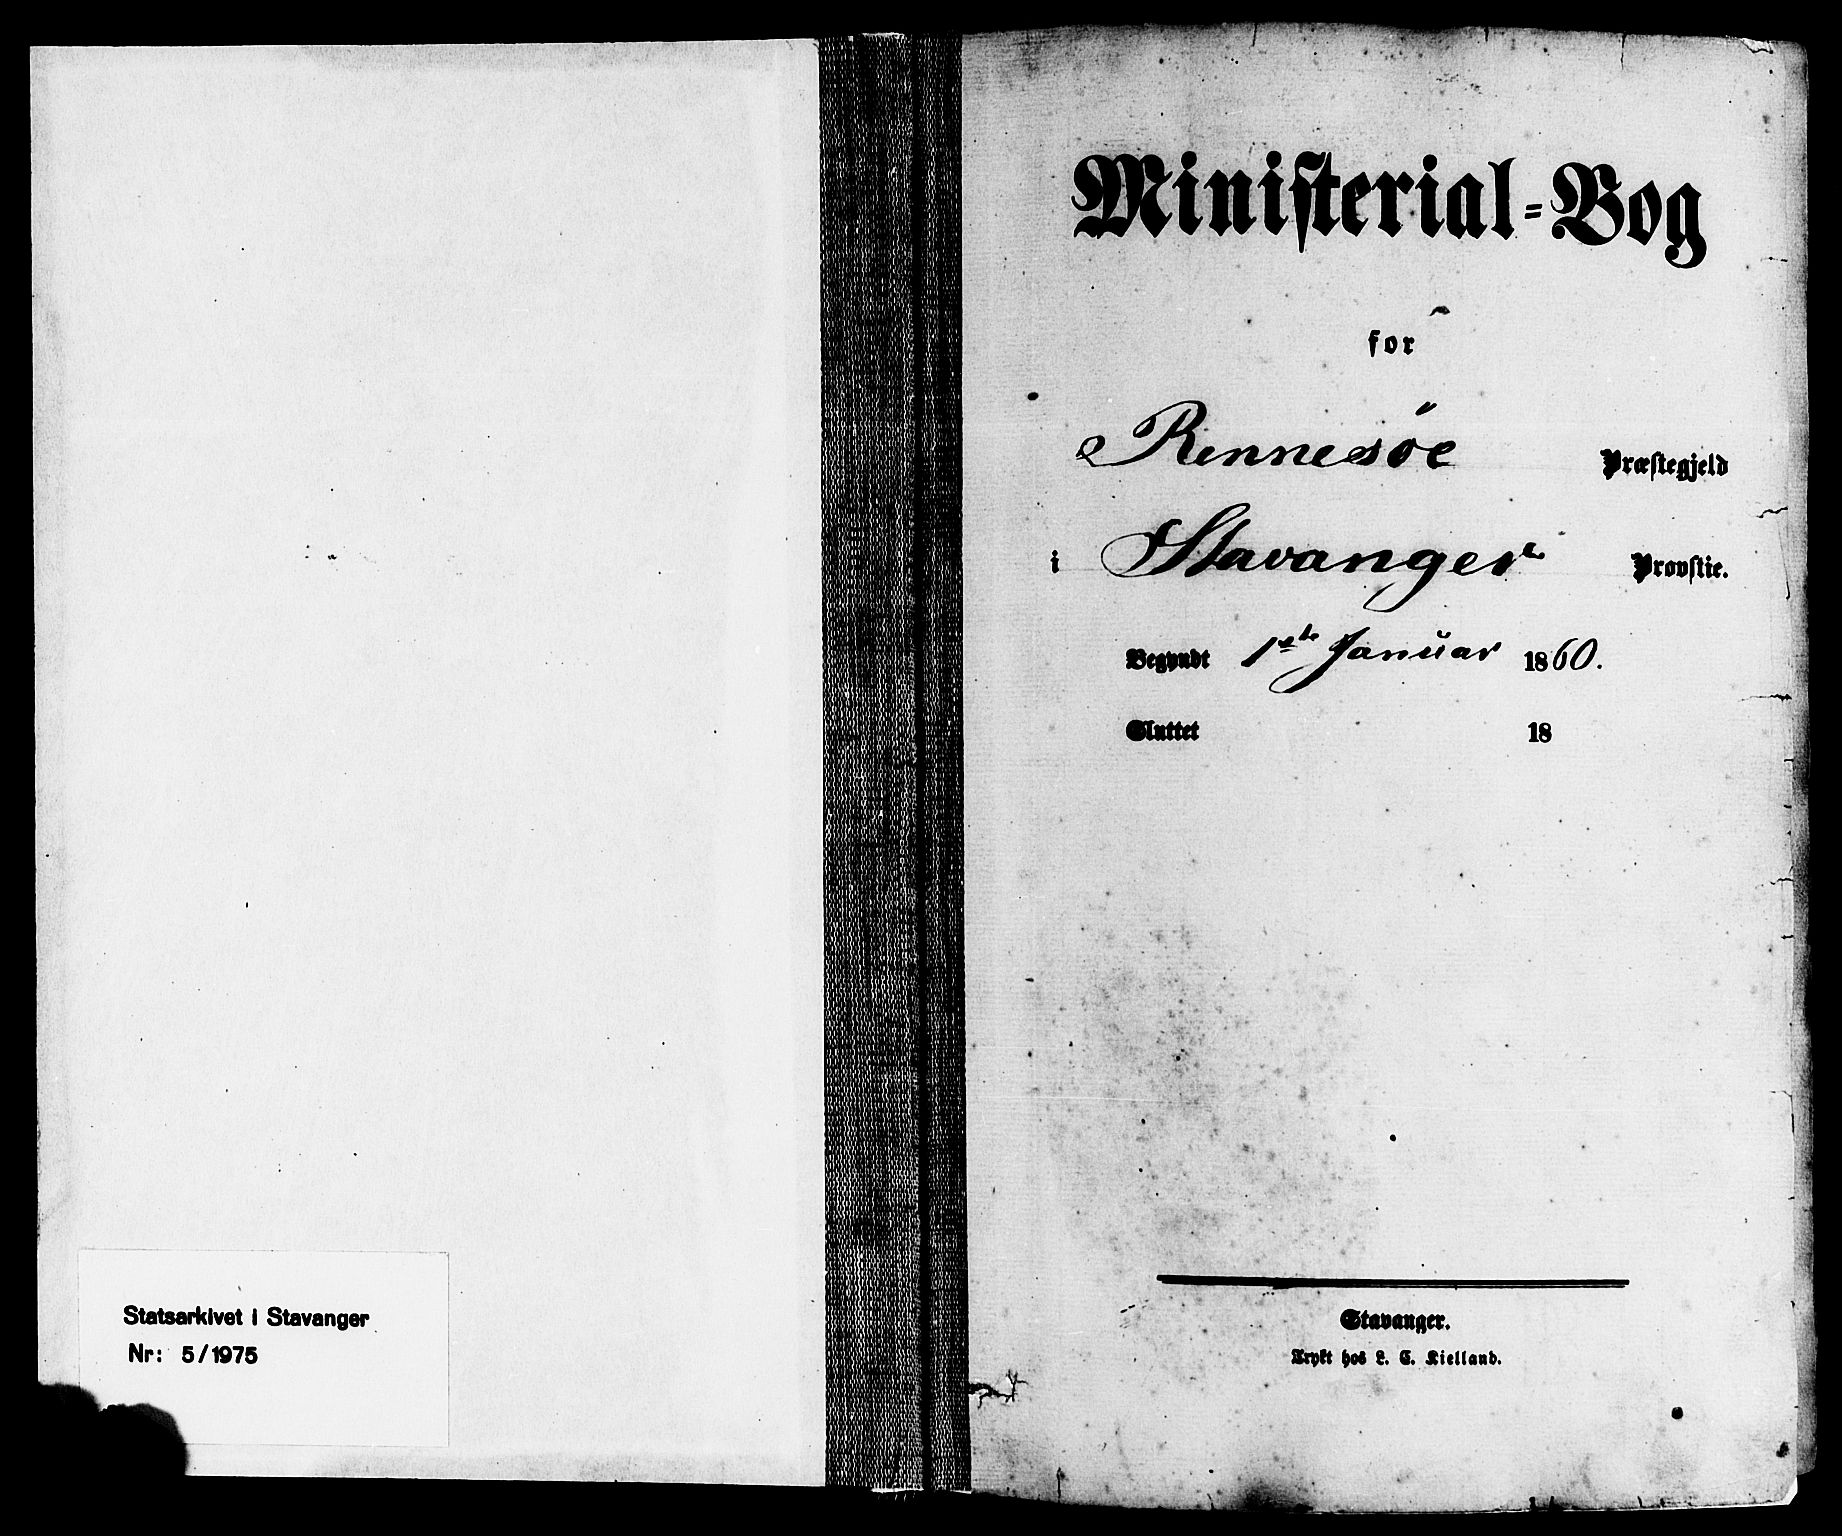 Statsarkivet i Stavanger
Nr: 5/1975
Ministerial-Bog
for
Rennesöe Præstegjeld
i Stavanger Provstie.
Begyndt 1ste Januar 1860.
Sluttet 18
Stavanger.
Trykt hos L. C. Kielland.